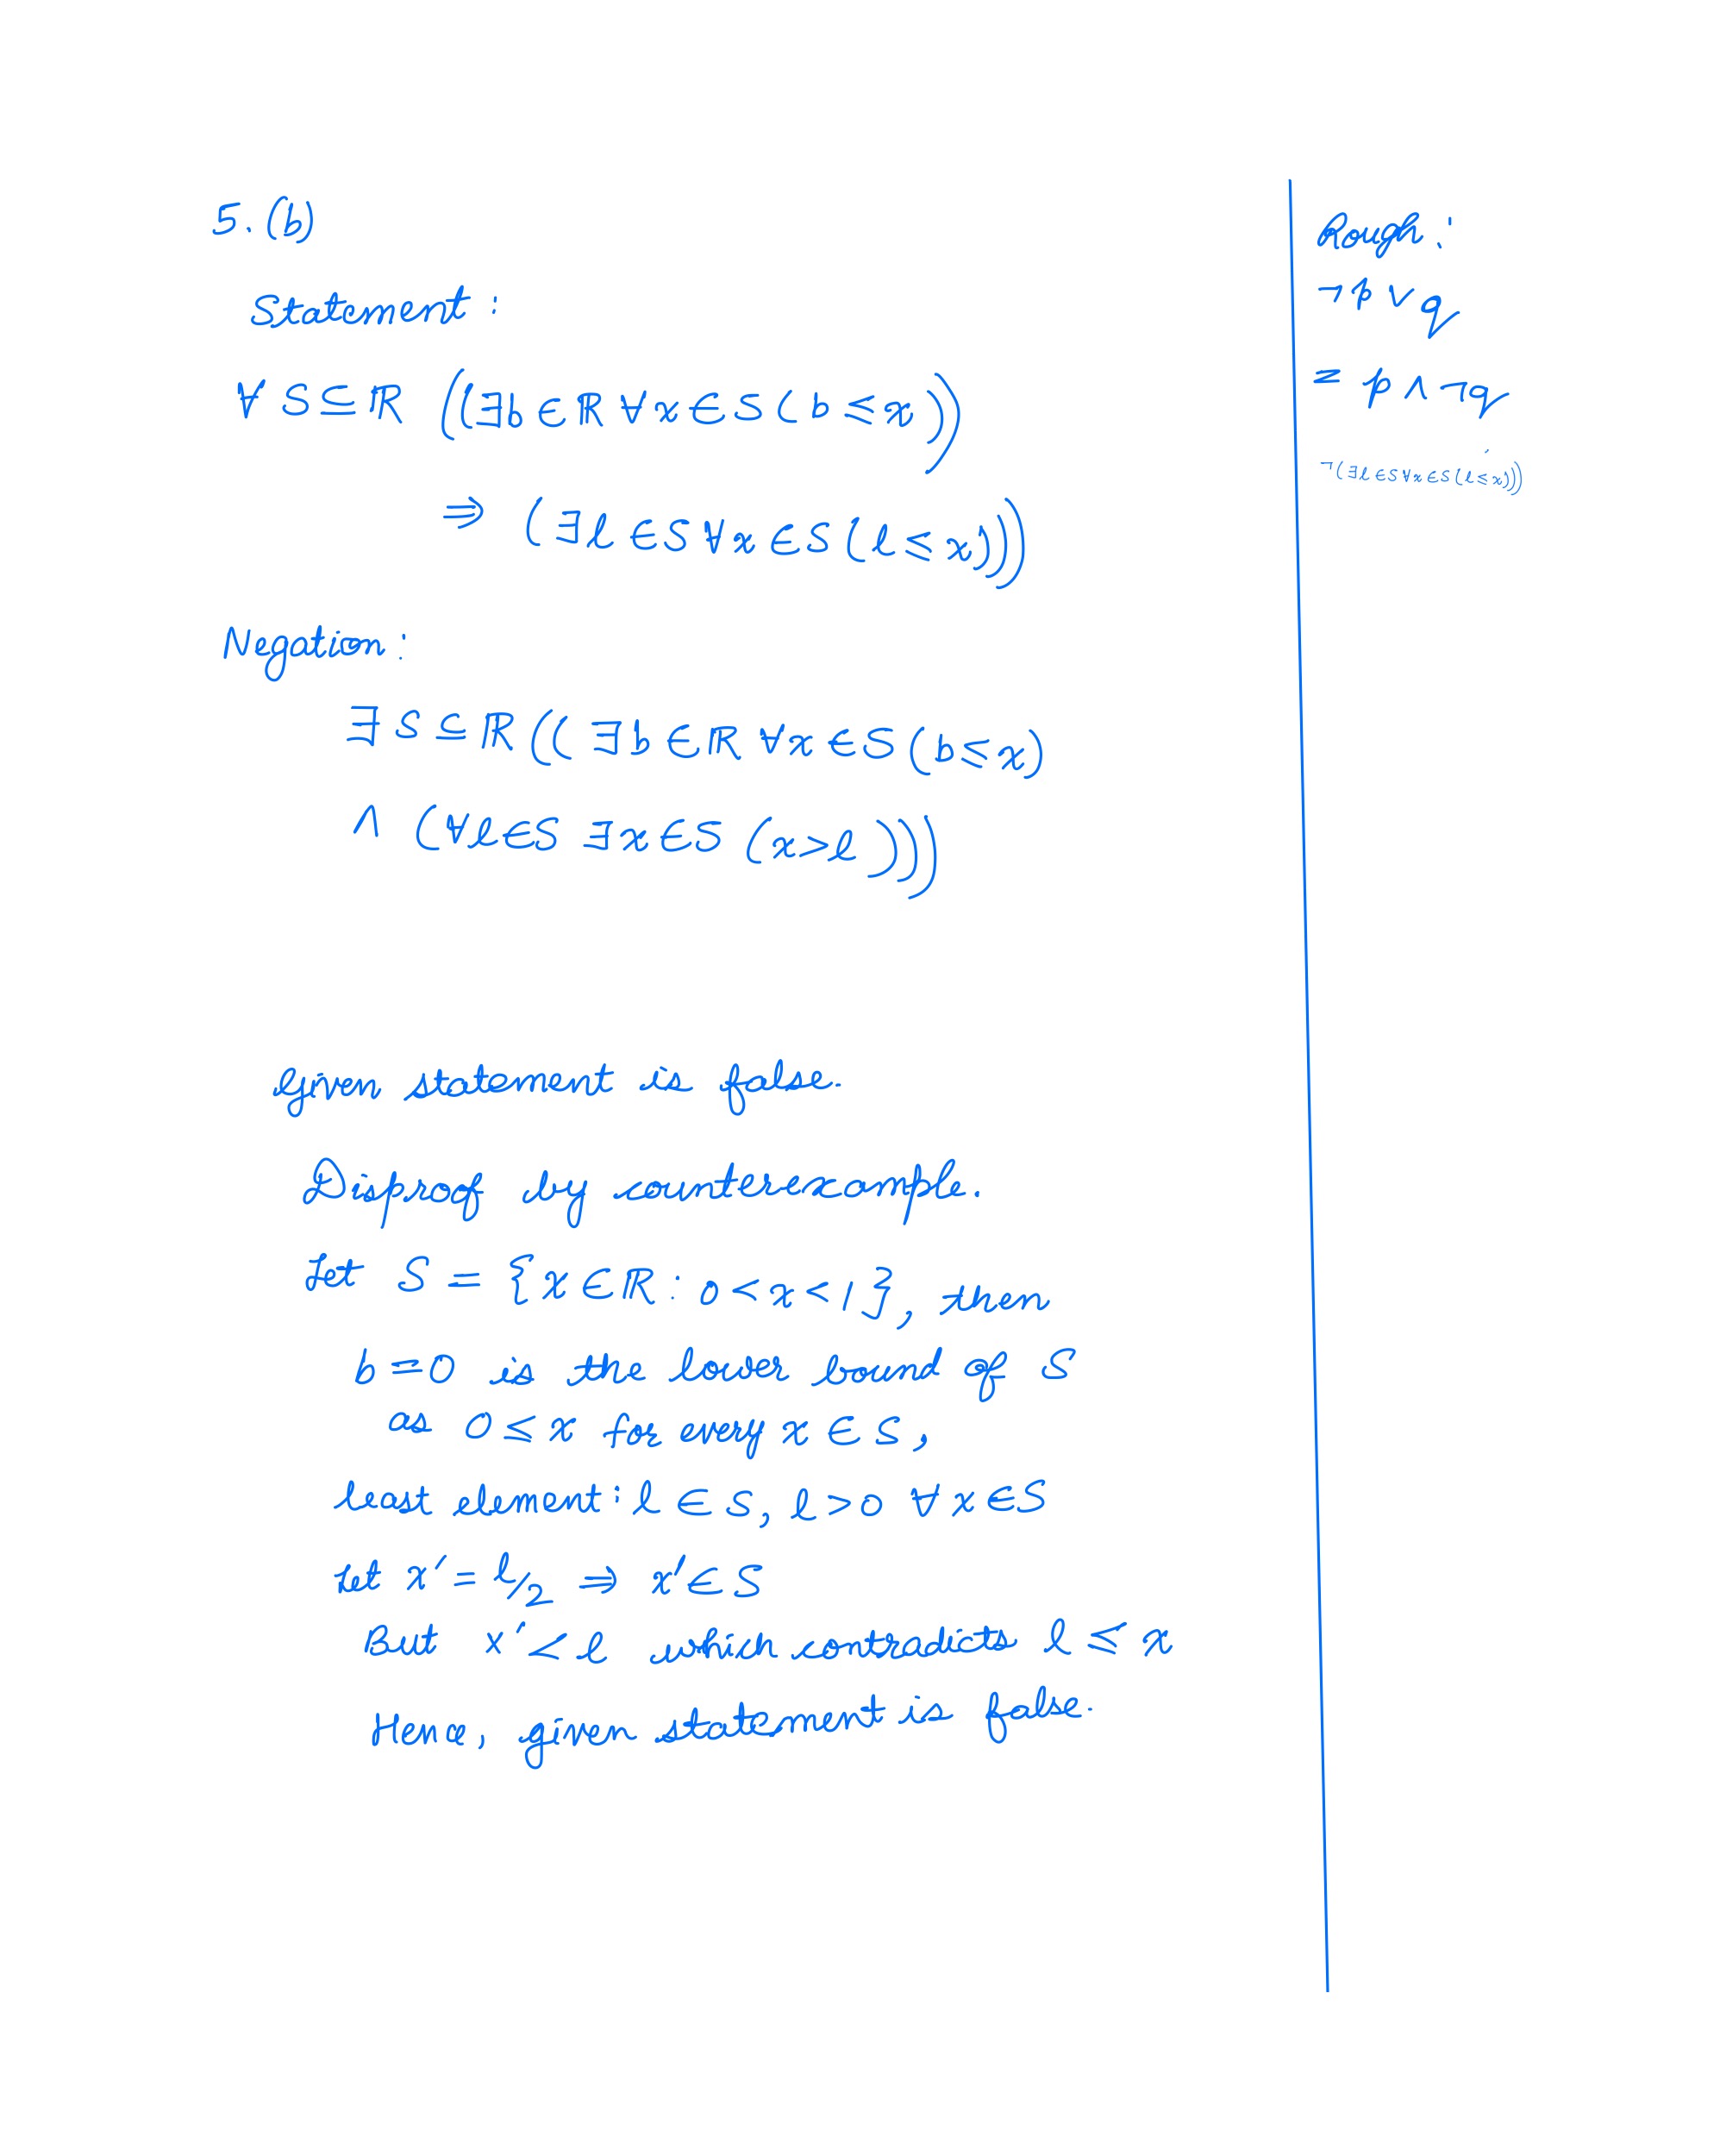 5. (b)
Statement :
∀ S ⊆ ℝ ((∃b ∈ ℝ ∀x ∈ S (b ≤ x))
⇒ (∃l ∈ S ∀x ∈ S (l ≤ x)))
Negation :
∃ S ⊆ ℝ (( ∃b ∈ ℝ ∀x ∈ S (b ≤ x)
∧ (∀l ∈ S ∃x ∈ S (x > l)))
Given statement is false.
Disproof by counterexample.
Let S = {x ∈ ℝ : 0 < x < 1}, then
b = 0 is the lower bound of S
as 0 ≤ x for every x ∈ S,
least element : l ∈ S, l > 0 ∀ x ∈ S
Let x' = l/2 ⇒ x' ∈ S
But x' < l which contradicts l ≤ x
Hence, given statement is false.
Rough :
¬p ∨ q
= p ∧ ¬q
¬(∃l ∈ S ∀x ∈ S (l ≤ x)))